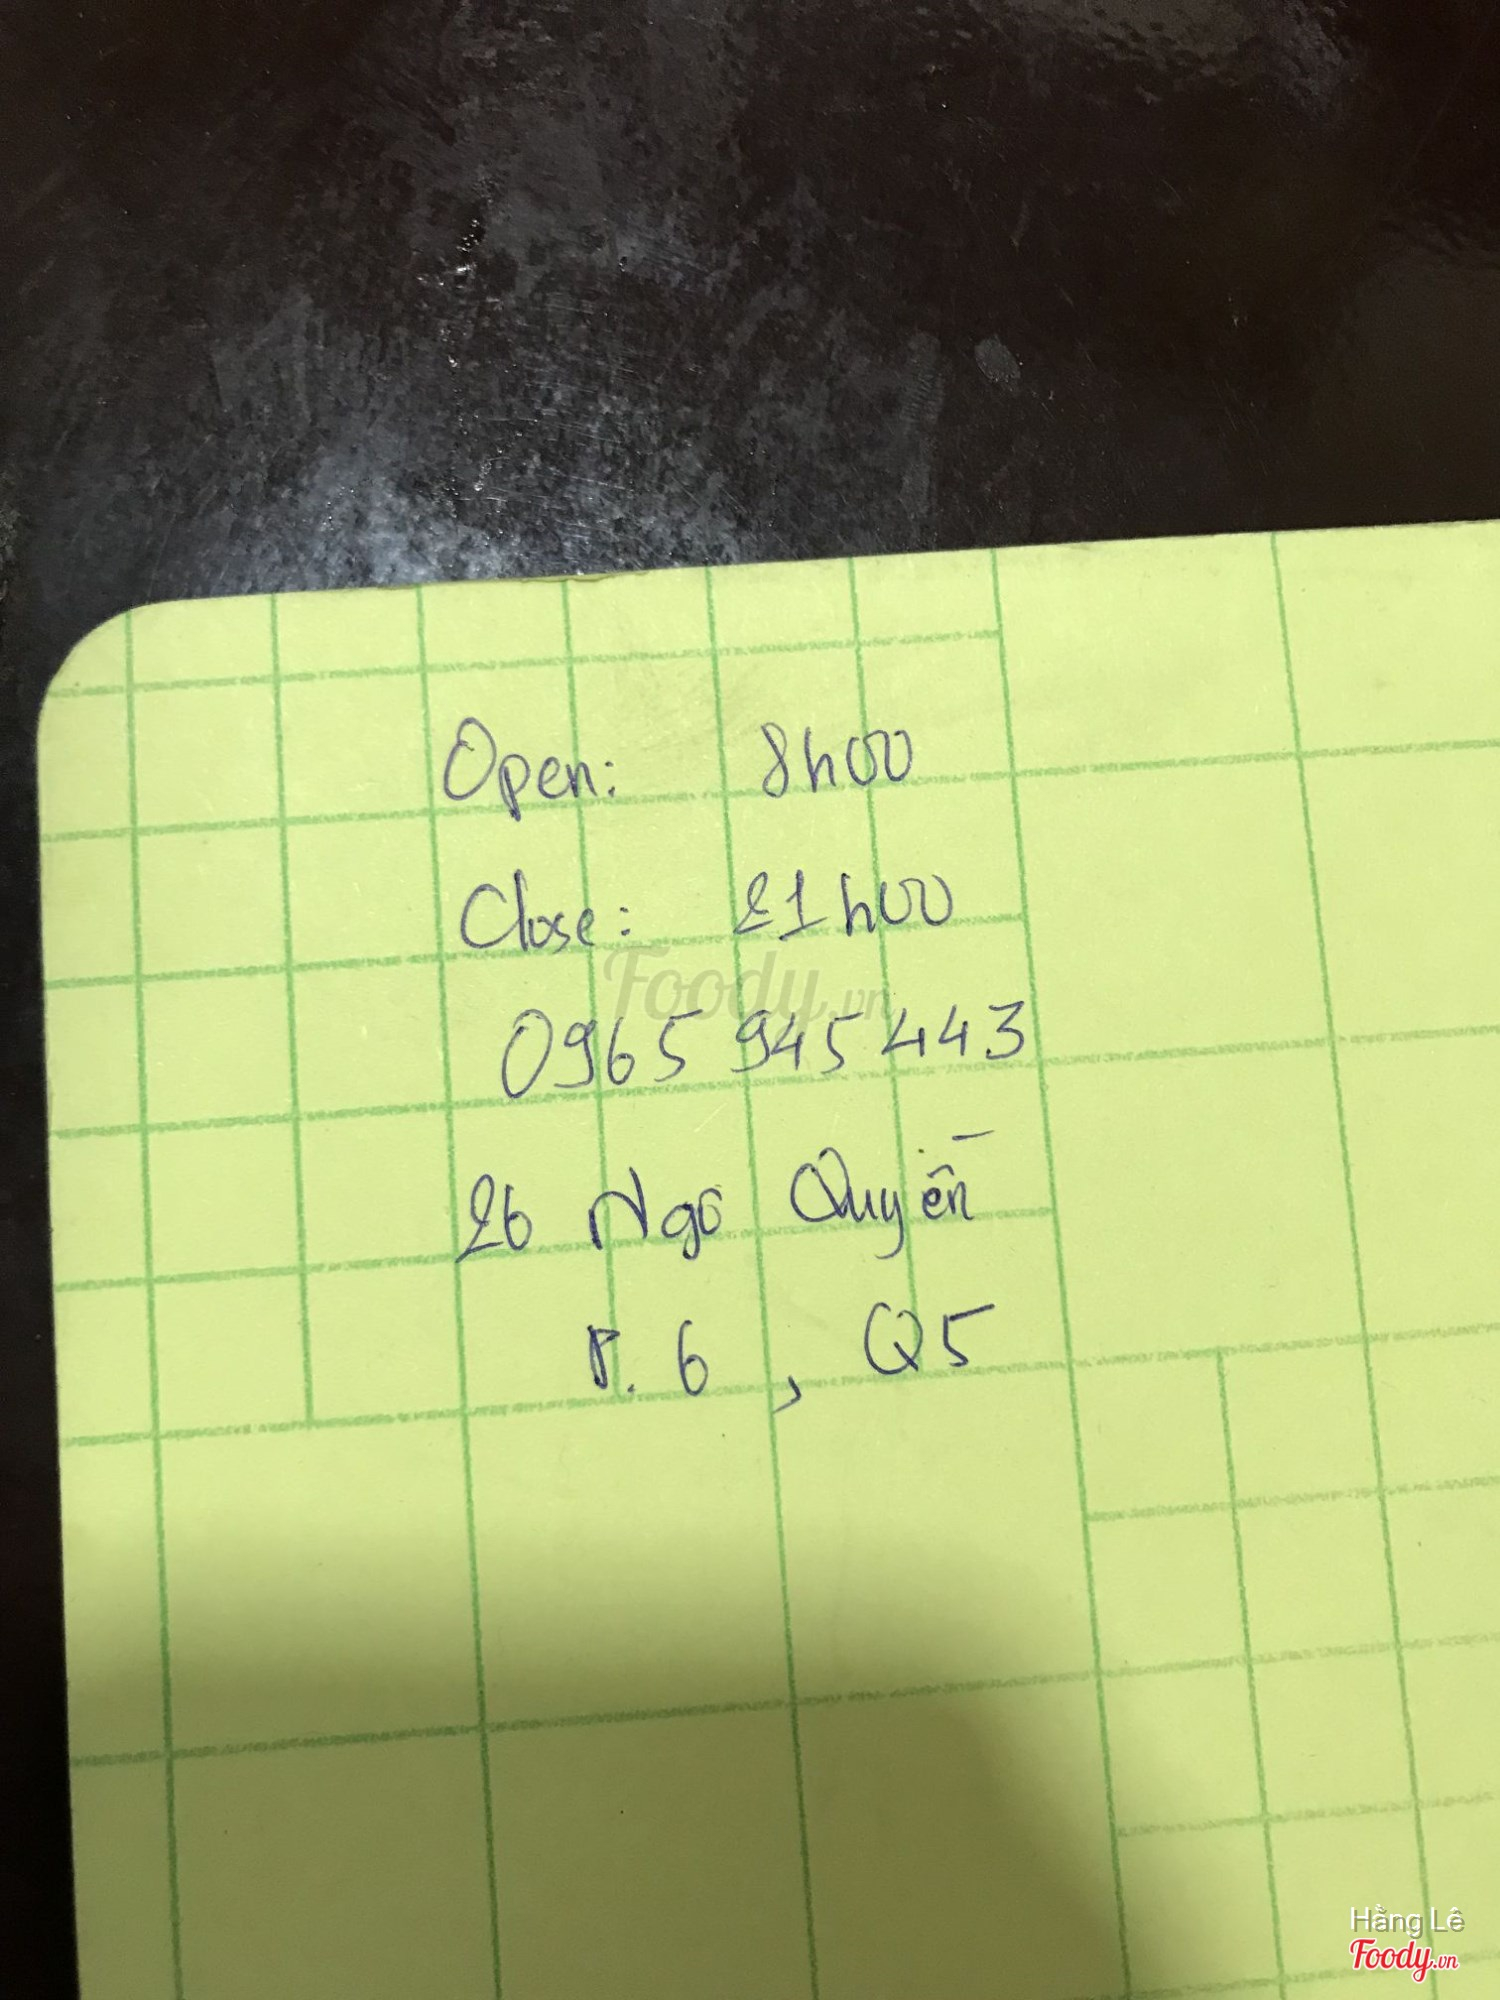 Open: 8h00
Close: 21h00
Foody.vn
0965 945 443
26 Ngô Quyền
P. 6 , Q5
Hằng Lê
Foody.vn